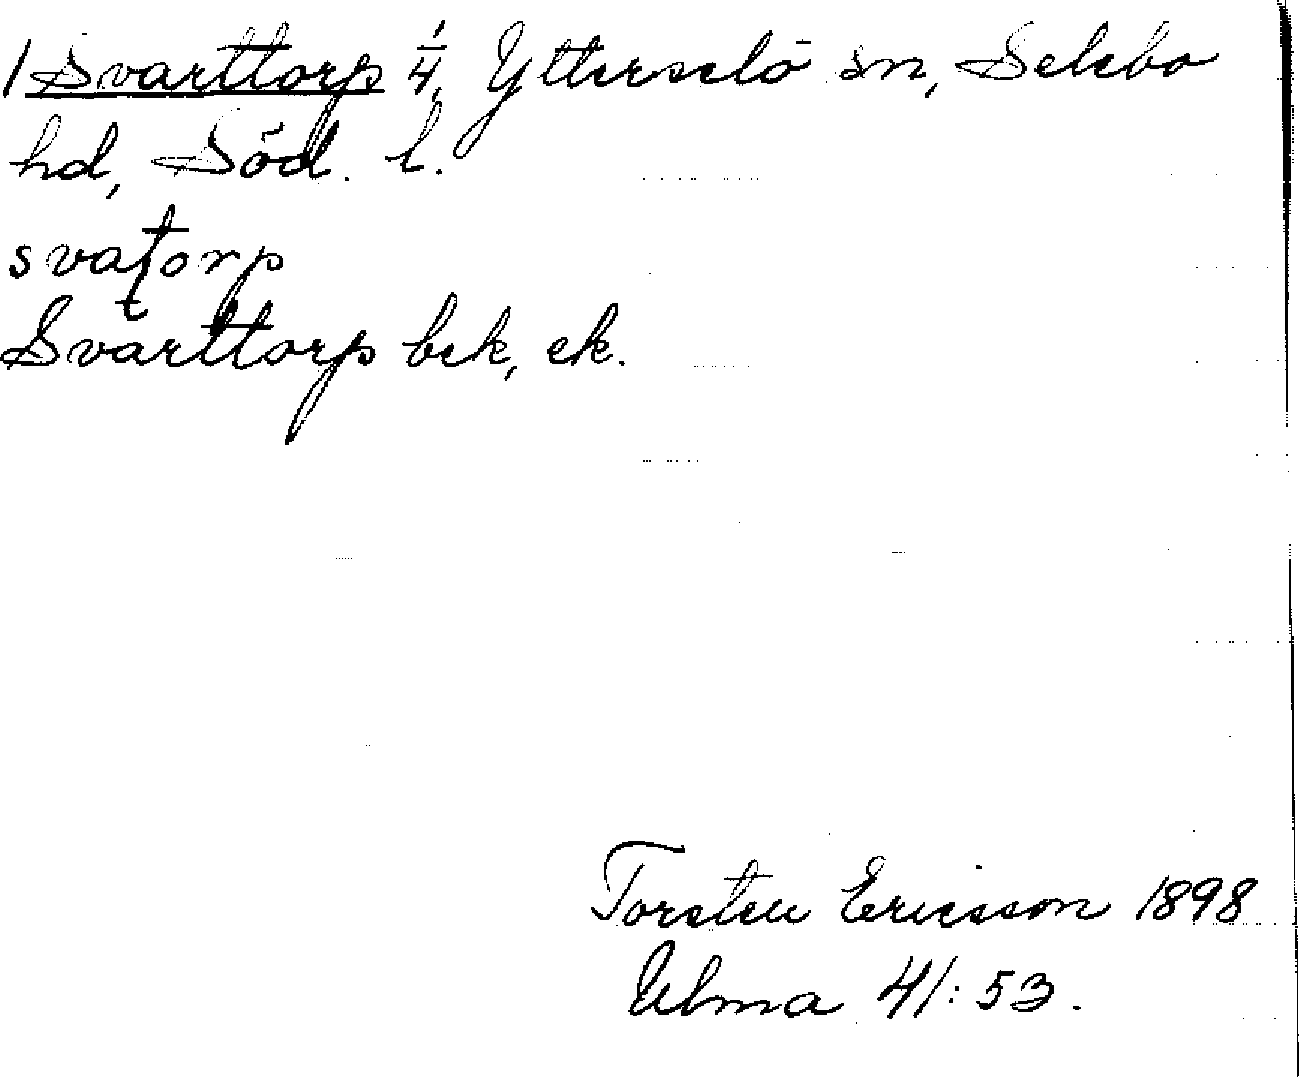 /Svarttorp 1/4, Ytterselö sn, Selebo
hd, Söd. l.
svaʈorp
Svarttorp bek, ek.
Torsten Ericsson 1898
Ulma 41:53.